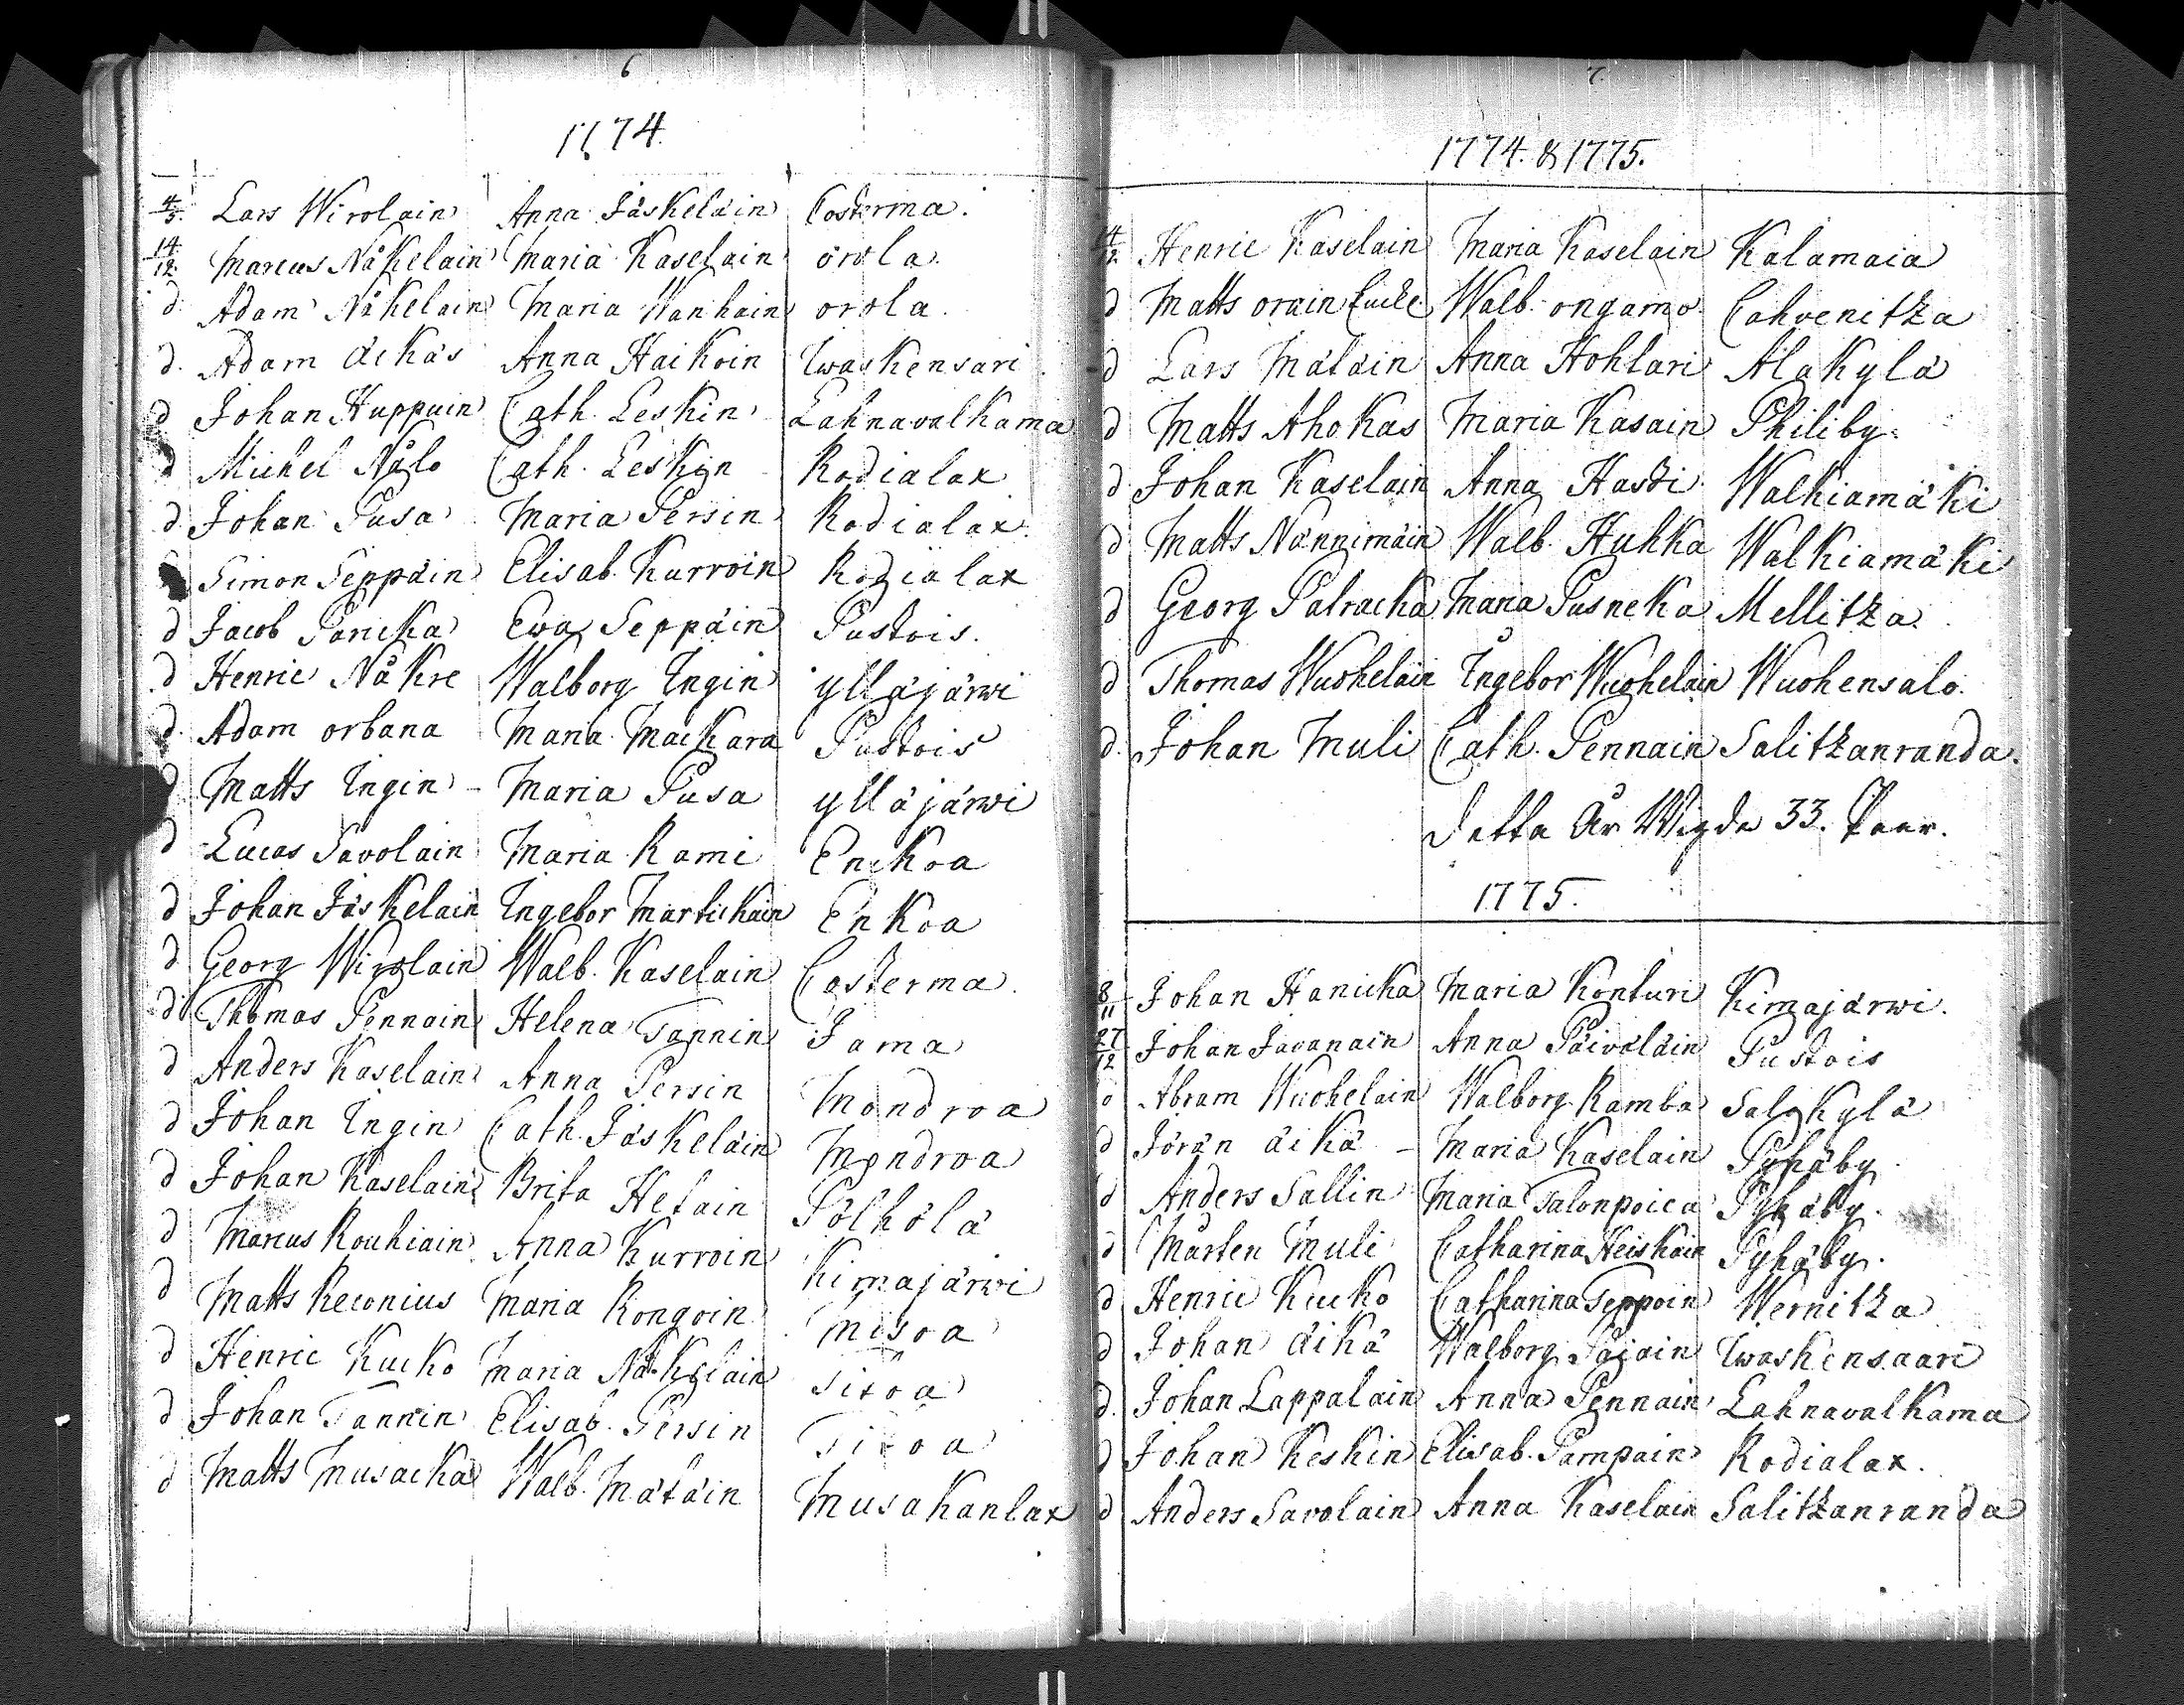 6
1774.
4/5 Lars Wirolain Anna Jäskeläin Costerma.
14/12 Marcus Nåkelain Maria Kaselain orola.
d Adam Nåkelain Maria Wanhain orola.
d. Adam äikäs Anna Haikoin Iwaskensari.
d Johan Huppuin Cath. Leskin Lahnavalkama
d Michel Nålo Cath. Leskin Rodialax
d Johan Pusa Maria Persin Rodialax.
Simon Seppäin Elisab. Kurroin Rodialax
d Jacob Paricka Ewa Seppäin Pustois.
d Henric Nåkre Walborg Ingin ylläjärwi
d Adam orbana Maria Mackara Pustois
d Matts Ingin - Maria Pusa ylläjärwi
d Lucas Savolain Maria Rami Enckoa
d Johan Jäskelain Ingebor Martickain Enkoa
d Georg Wirolain Walb. Kaselain Costerma.
d Thomas Pennain Helena Tannin Jama
d Anders Kaselain Anna Persin Mondroa
d Johan Ingin Cath. Jäskeläin Mondroa
d Johan Kaselain Brita Hetain Pölhölä
d Marcus Rouhiain Anna Kurroin Kimajärwi
d Matts Reconius Maria Rongoin Misoa
d Henric Kucko Maria Nåkelain Tixoa
d Johan Tannin Elisab. Persin Tixoa
d Matts Musacka Walb. Mätäin Musakanlax
7.
1774. & 1775.
14/12 Henric Kaselain Maria Kaselain Kalamaia
d Matts orain Walb. ongamo Cahvenitza
d Lars Mätäin Anna Hohlari Alakylä
d Matts Ahokas Maria Kasain Philiby.
d Johan Kaselain Anna Haski Walkiamäki
d Matts Nännimäin Walb. Hukka Walkiamäki
d Georg Patracka Maria Pusneka Mellitza.
d Thomas Wuohelain Ingebor Wuohelain Wuohensalo.
d. Johan Muli Cath. Pennain Salitzanranda.
Detta År Wigde 33. Paar.
1775.
8/11 Johan Hanicka Maria Konturi Kimajärwi.
27/12 Johan Javanain Anna Päiväläin Pustois
d Abram Wuohelain Walborg Ramba Salokylä
d Jörän äikä - Maria Kaselain Pyhäby.
d Anders Sallin Maria Talonpoica Pyhäby.
d Mårten Muli Catharina Heiskain Pyhäby.
d Henric Kucko Catharina Teppoin Wernitza
d Johan äikä Walborg Pajain Iwaskensaari
d. Johan Lappalain Anna Pennain Lahnavalkama
d Johan Keskin Elisab. Pampain Rodialax.
d Anders Savolain Anna Kaselain Salitzanranda